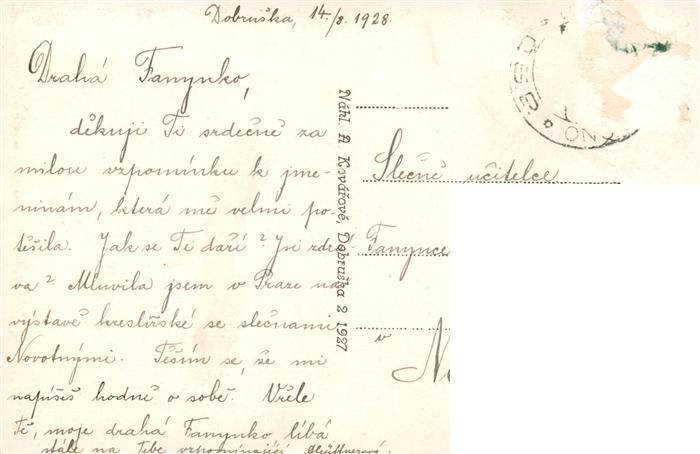 Dobruška, 14./8. 1928.
Drahá Fanynko,
děkuji Ti srdečně za
milou vzpomínku k jme-
ninám, která mě velmi po-
těšila. Jak se Ti daří? Jsi zdrá-
va? Mluvila jsem v Praze na
výstavě kreslířské se slečnami
Novotnými. Těším se, že mi
napíšeš hodně o sobě. Vřele
Tě, moje drahá Fanynko líbá
stále na Tebe vzpomínající
Nákl. A Kovářové, Dobruška 2 1927
Slečně učitelce
Fanynce
v